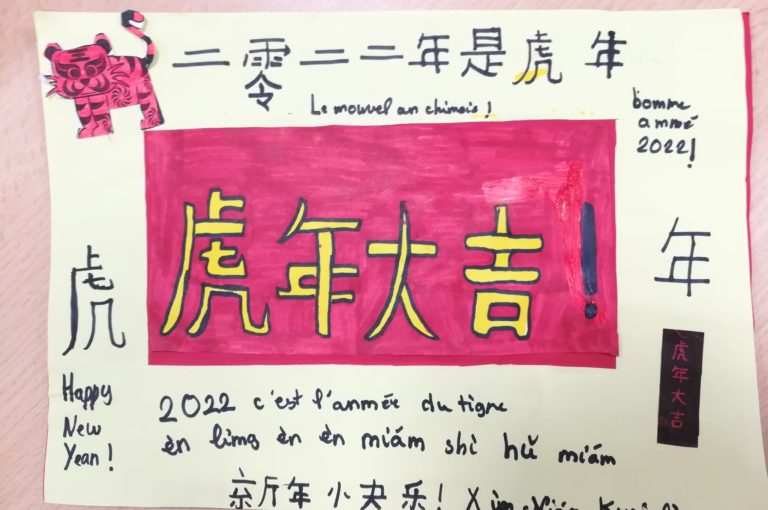 二零二二年是虎年
Le nouvel an chinois !
bonne
année
2022!
虎年大吉!
虎
年
虎年大吉
Happy
New
Year!
2022 c'est l'année du tigre
èn líng èn èn nián shì hǔ nián
亲斤年小夬乐! Xīn Nián Kuài lè